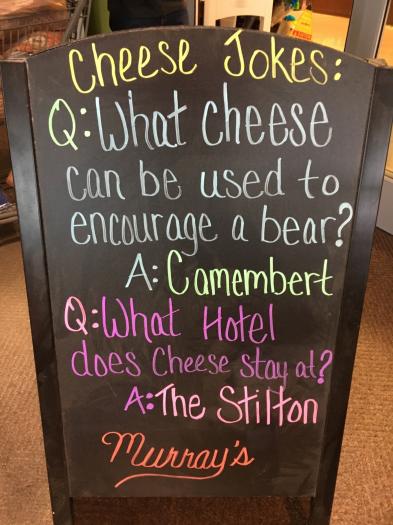 Cheese Jokes:
Q: What cheese
can be used to
encourage a bear?
A: Camembert
Q: What Hotel
does Cheese stay at?
A: The Stilton
Murray's